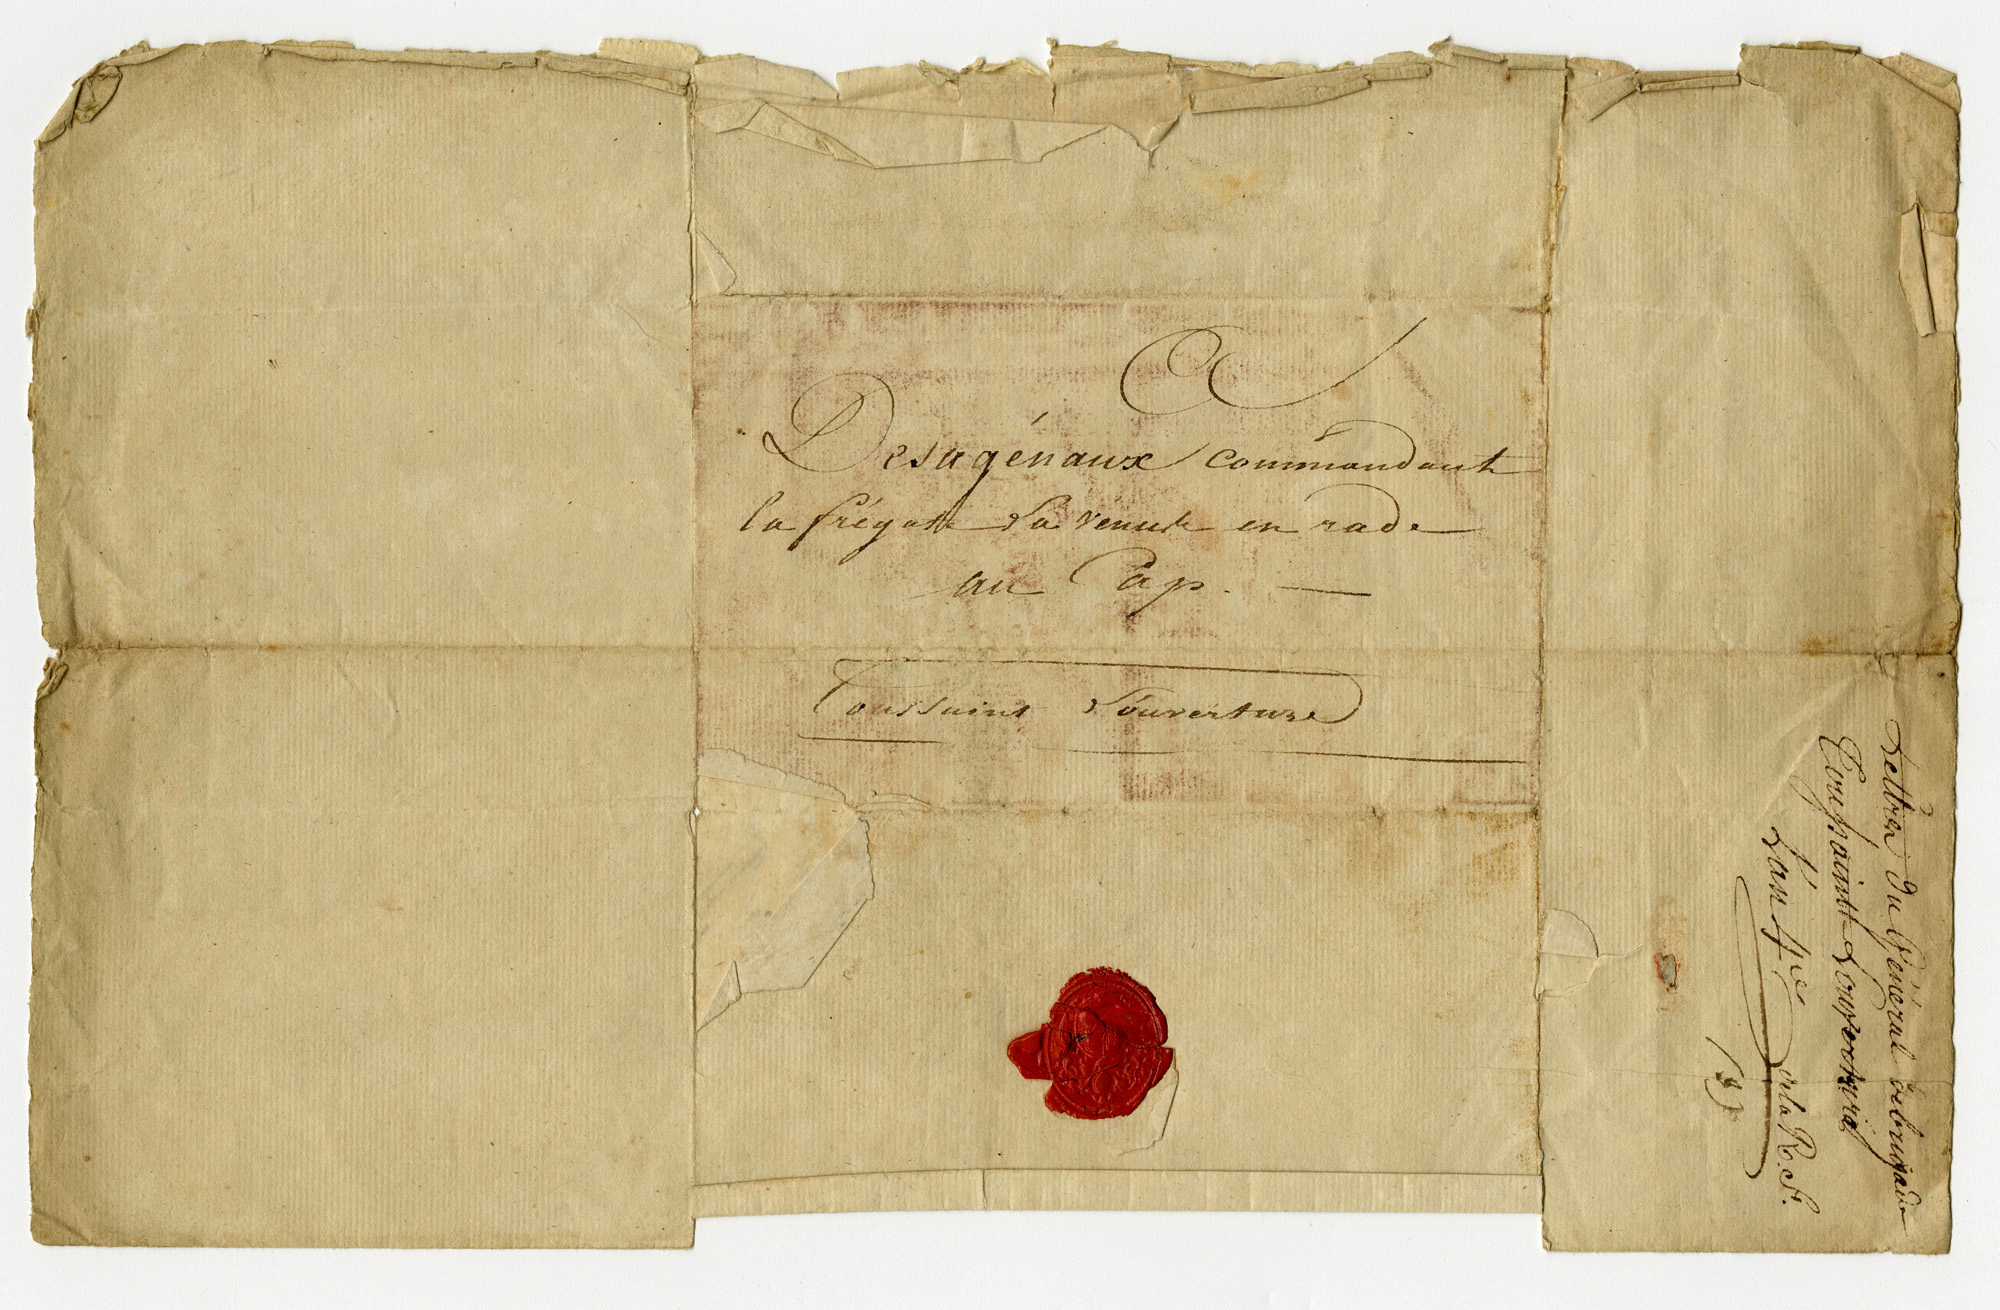 A
Desagénaux commandant
la frégate La Venus en rade
au Cap.
Toussaint Louverture
Lettre du Général de brigade
Toussaint Louverture
L'an 4e de la R. f.